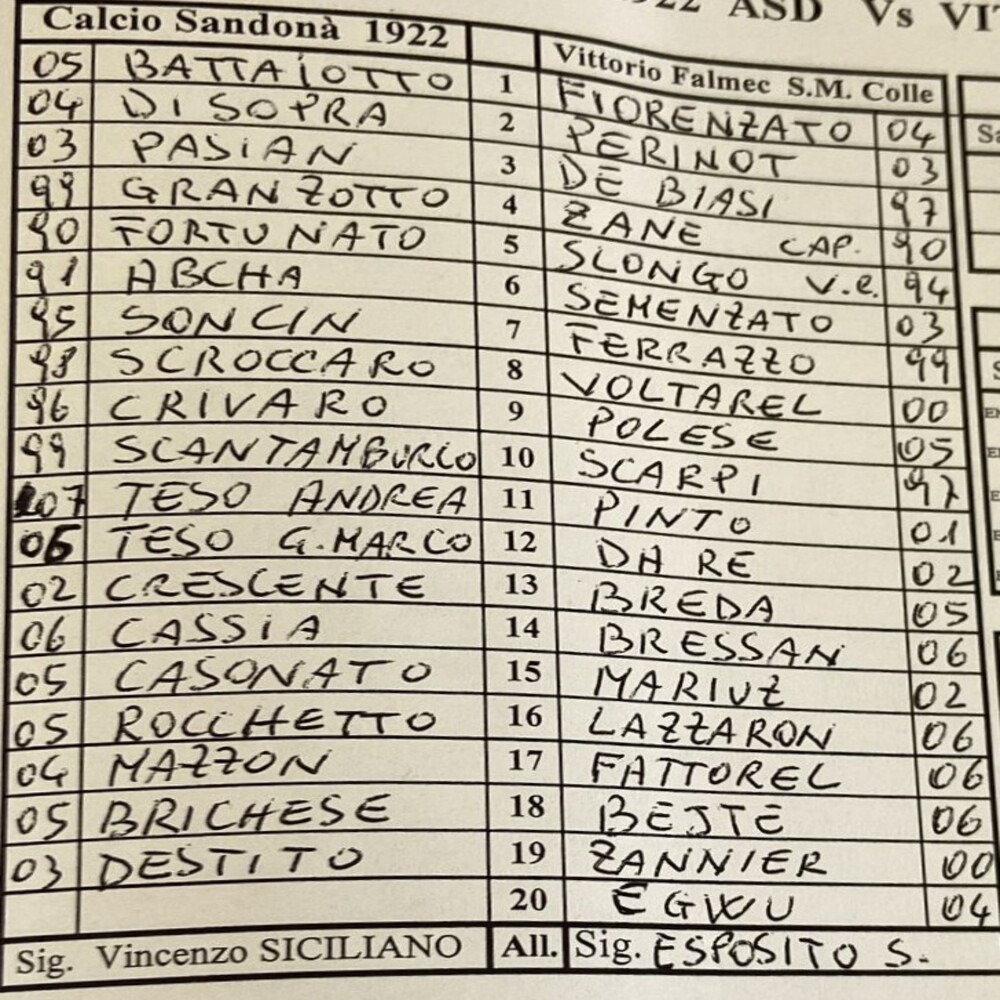 1922 ASD Vs VIT
Calcio Sandonà 1922 Vittorio Falmec S.M. Colle
05 BATTAIOTTO 1 FIORENZATO 04
04 DI SOPRA 2 PERINOT 03
03 PASIAN 3 DE BIASI 97
99 GRANZOTTO 4 ZANE CAP. 90
90 FORTUNATO 5 SLONGO V.C. 94
91 ABCHA 6 SEMENZATO 03
95 SONCIN 7 FERRAZZO 99
98 SCROCCARO 8 VOLTAREL 00
96 CRIVARO 9 POLESE 05
99 SCANTAMBURLO 10 SCARPI 97
07 TESO ANDREA 11 PINTO 01
06 TESO G.MARCO 12 DA RE 02
02 CRESCENTE 13 BREDA 05
06 CASSIA 14 BRESSAN 06
05 CASONATO 15 MARIUZ 02
05 ROCCHETTO 16 LAZZARON 06
04 MAZZON 17 FATTOREL 06
05 BRICHESE 18 BEJTE 06
03 DESTITO 19 ZANNIER 00
20 EGWU 04
Sig. Vincenzo SICILIANO All. Sig. ESPOSITO S.